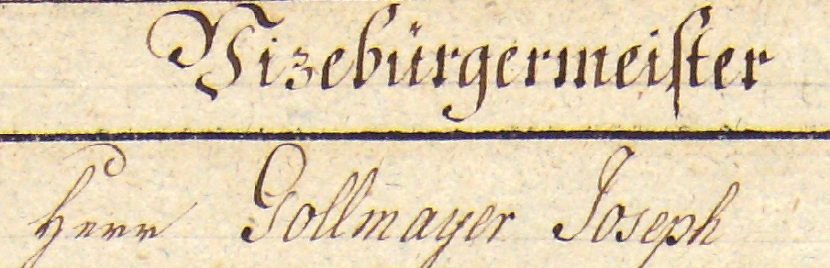 Vizebürgermeister
Herr Gollmayer Joseph